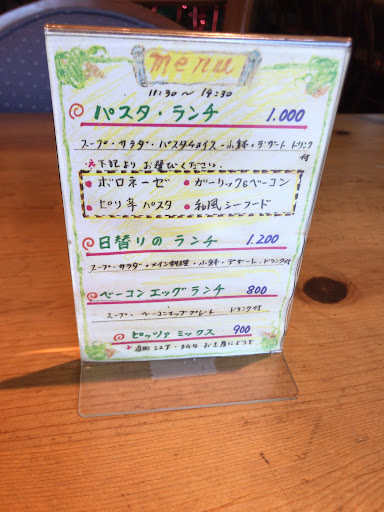 menu
11:30〜14:30
パスタ・ランチ 1.000
スープ・サラダ・パスタチョイス・小鉢・デザート ドリンク付
※下記よりお選びください。
• ボロネーゼ • ガーリック&ベーコン
• ピリ辛パスタ • 和風シーフード
日替りのランチ 1.200
スープ・サラダ・メイン料理・小鉢・デザート・ドリンク付
ベーコンエッグランチ 800
スープ・ベーコンエッグプレート ドリンク付
ピッツァ ミックス 900
お土産にどうぞ